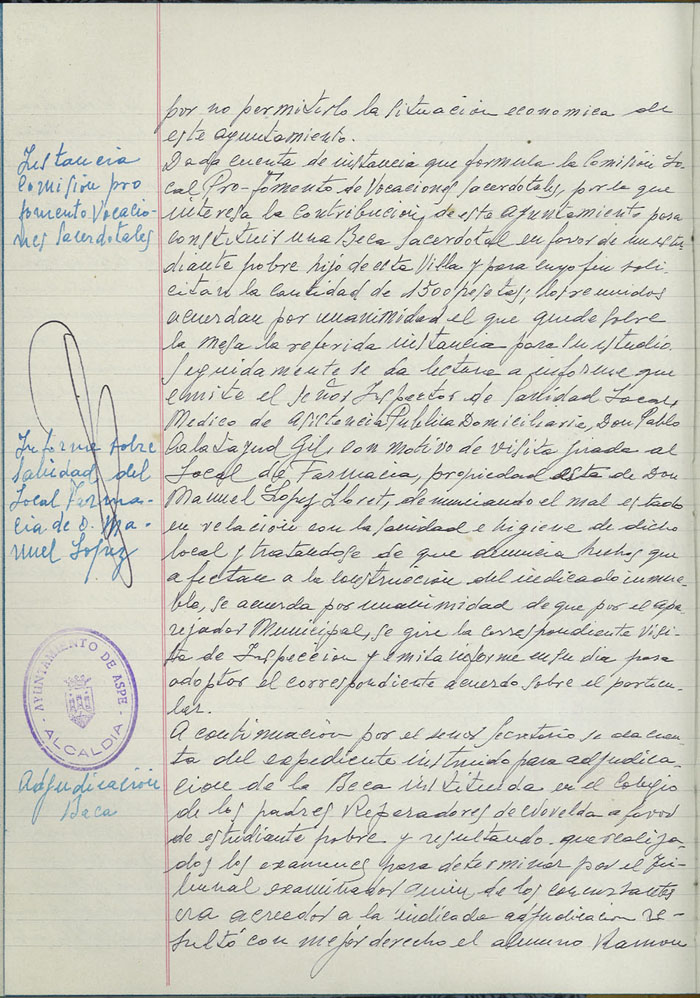 por no permitirlo la situación economica de
este ayuntamiento.
Instancia
Comisión pro
fomento Vocacio-
nes Sacerdotales
Dada cuenta de instancia que formula la Comisión Lo-
cal Pro-Fomento de Vocaciones Sacerdotales, por la que
interesa la contribucion, de este ayuntamiento para
constituir una Beca Sacerdotal en favor de un estu-
diante pobre hijo de esta Villa y para cuyo fin soli-
citan la cantidad de 1500 pesetas; los reunidos
acuerdan por unanimidad el que quede sobre
la mesa la referida instancia para su estudio.
Informe sobre
sanidad del
Local Farma-
cia de D. Ma-
nuel Lopez
Seguidamente se da lectura a informe que
emite el señor Inspector de Sanidad Local,
Medico de Asistencia Publica Domiciliaria, Don Pablo
Calatayud Gil, con motivo de visita girada al
Local de Farmacia, propiedad esta de Don
Manuel Lopez Lloret, denunciando el mal estado
en relación con la sanidad e higiene de dicho
local y tratandose de que denuncia hechos que
afectan a la construcción del indicado inmue-
ble, se acuerda por unanimidad de que por el Apa-
rejador Municipal, se gire la correspondiente visi-
ta de Inspeccion y emita informe en su dia para
adoptar el correspondiente acuerdo sobre el particu-
lar.
AYUNTAMIENTO DE ASPE
ALCALDIA
Adjudicación
Beca
A continuacion por el señor Secretario se da cuen-
ta del expediente instruido para adjudica-
cion de la Beca instituida en el Colegio
de los padres Reparadores de Novelda a favor
de estudiante pobre y resultando que realiza-
dos los examenes para determinar por el Tri-
bunal examinador quien de los concursantes
era acreedor a la indicada adjudicacion re-
sultó con mejor derecho el alumno Ramon